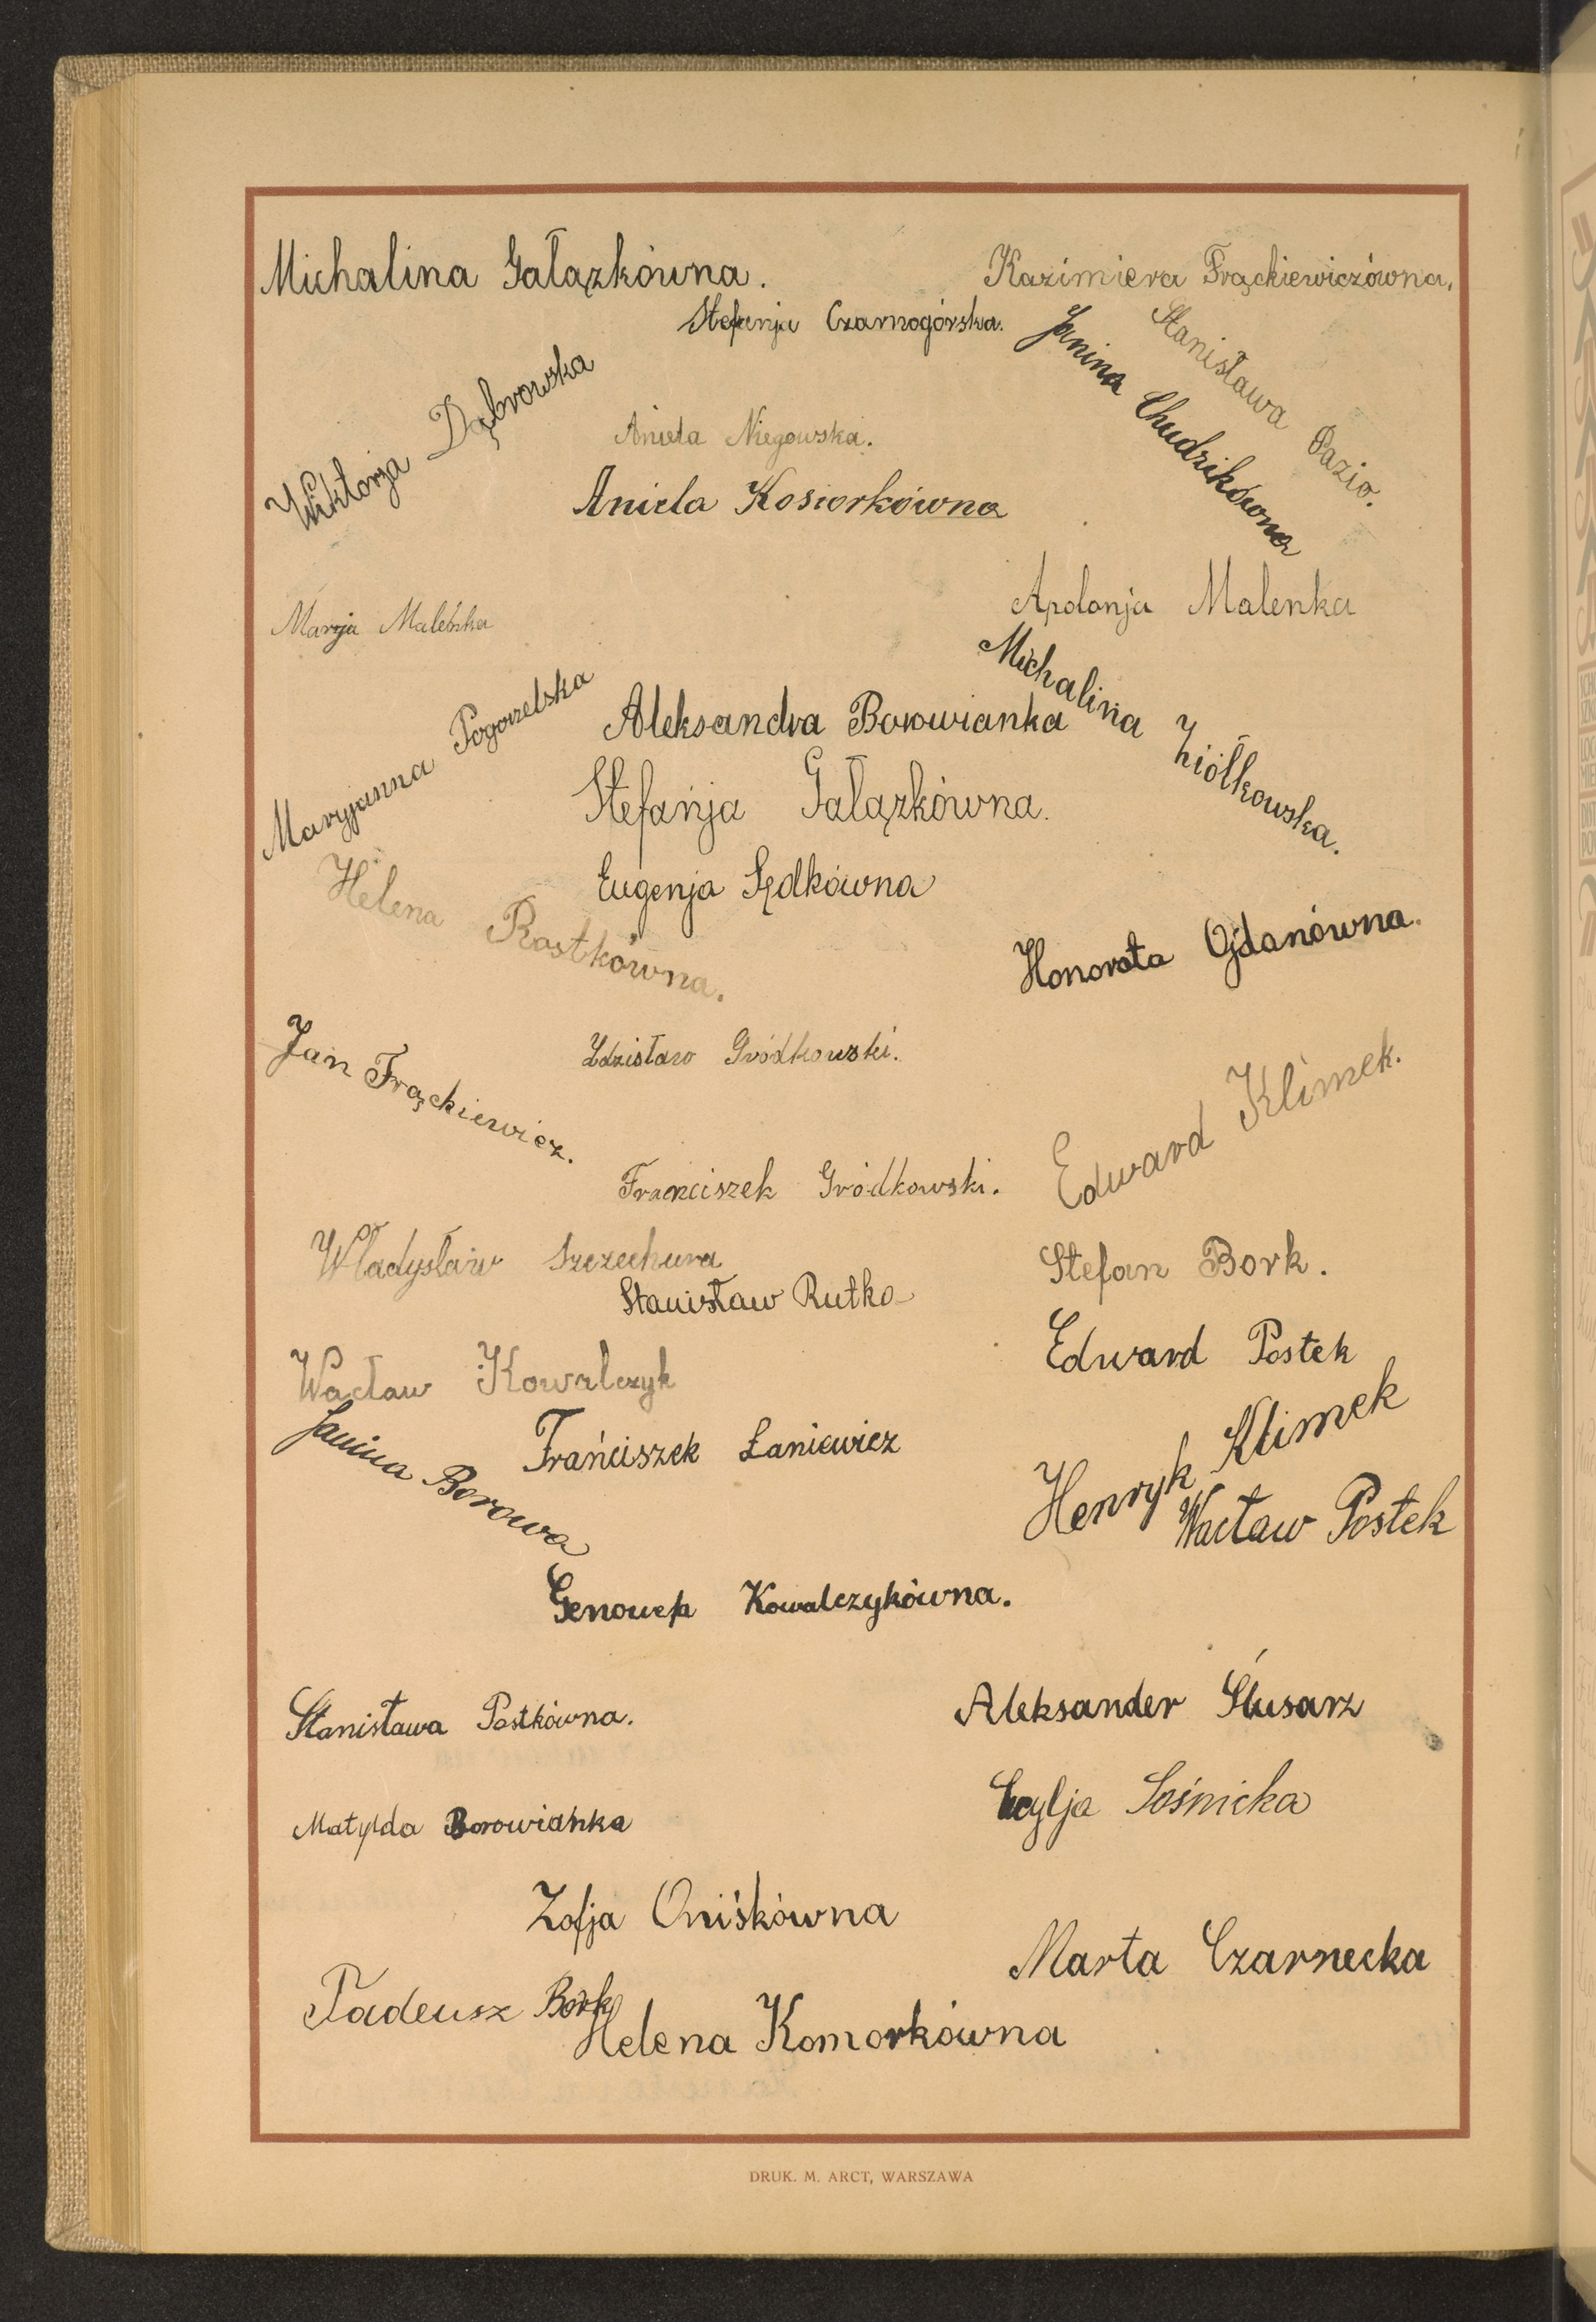 Michalina Gałązkówna.
Kazimiera Frąckiewiczówna.
Stefanja Czarnogórska.
Janina Chudzikówna
Stanisława Pazio.
Wiktorja Dąbrowska
Aniela Niegowska.
Aniela Kosiorkówna
Apolonja Malenka
Marja Maleńka
Michalina Ziółkowska.
Maryjanna Pogorzelska
Aleksandra Borowianka
Stefańja Gałązkówna.
Eugenja Sędkówna
Helena Rostkówna.
Honorata Ojdanówna.
Jan Frąckiewicz.
Zdzisław Gródkowski.
Edward Klimek.
Franciszek Gródkowski.
Władysław Szczechura
Stefan Bork.
Stanisław Rutka
Edward Postek
Wacław Kowalczyk
Janina Borowa
Frańciszek Łaniewicz
Henryk Klimek
Wacław Postek
Genowefa Kowalczykówna.
Stanisława Postkówna.
Aleksander Ślusarz
Cecylja Sośnicka
Matylda Borowianka
Zofja Oniśkówna
Marta Czarnecka
Tadeusz Bork
Helena Komorkówna
DRUK. M. ARCT, WARSZAWA